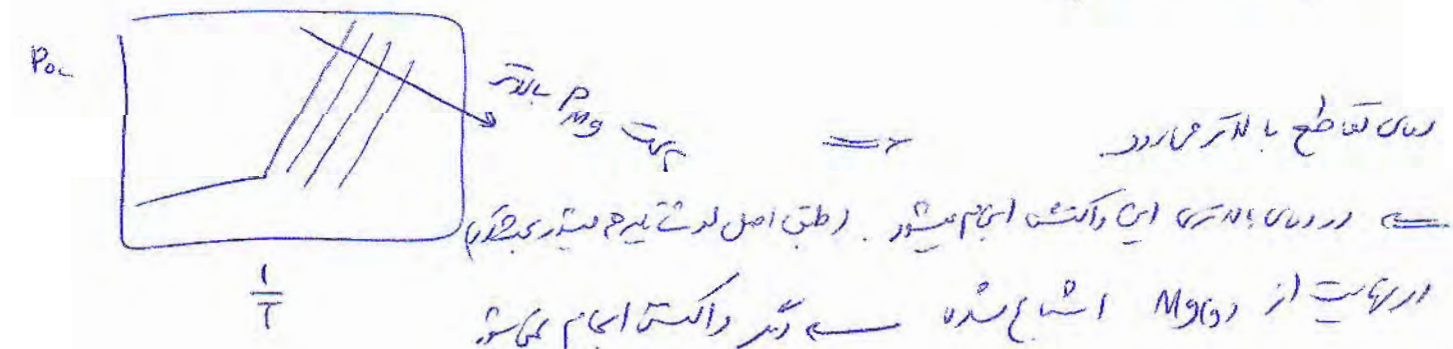 P₀₂
سمت P_Mg بالاتر
⇐ دمای تقاطع بالاتر می‌رود
⇐ در دمای بالاتری این واکنش انجام میشود. (طبق اصل لوشاتلیه هم میتوان
در نهایت از Mg(g) اشباع شده ← دیگر واکنش انجام نمی‌شود
1/T